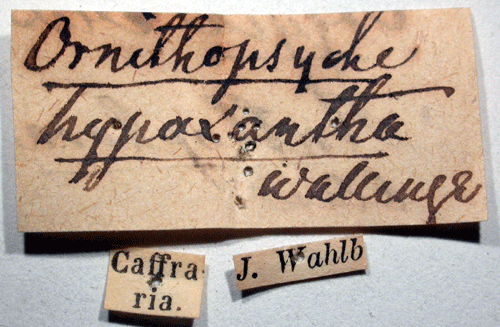 Ornithopsyche
hypoxantha
wallengr
Caffra
ria.
J. Wahlb